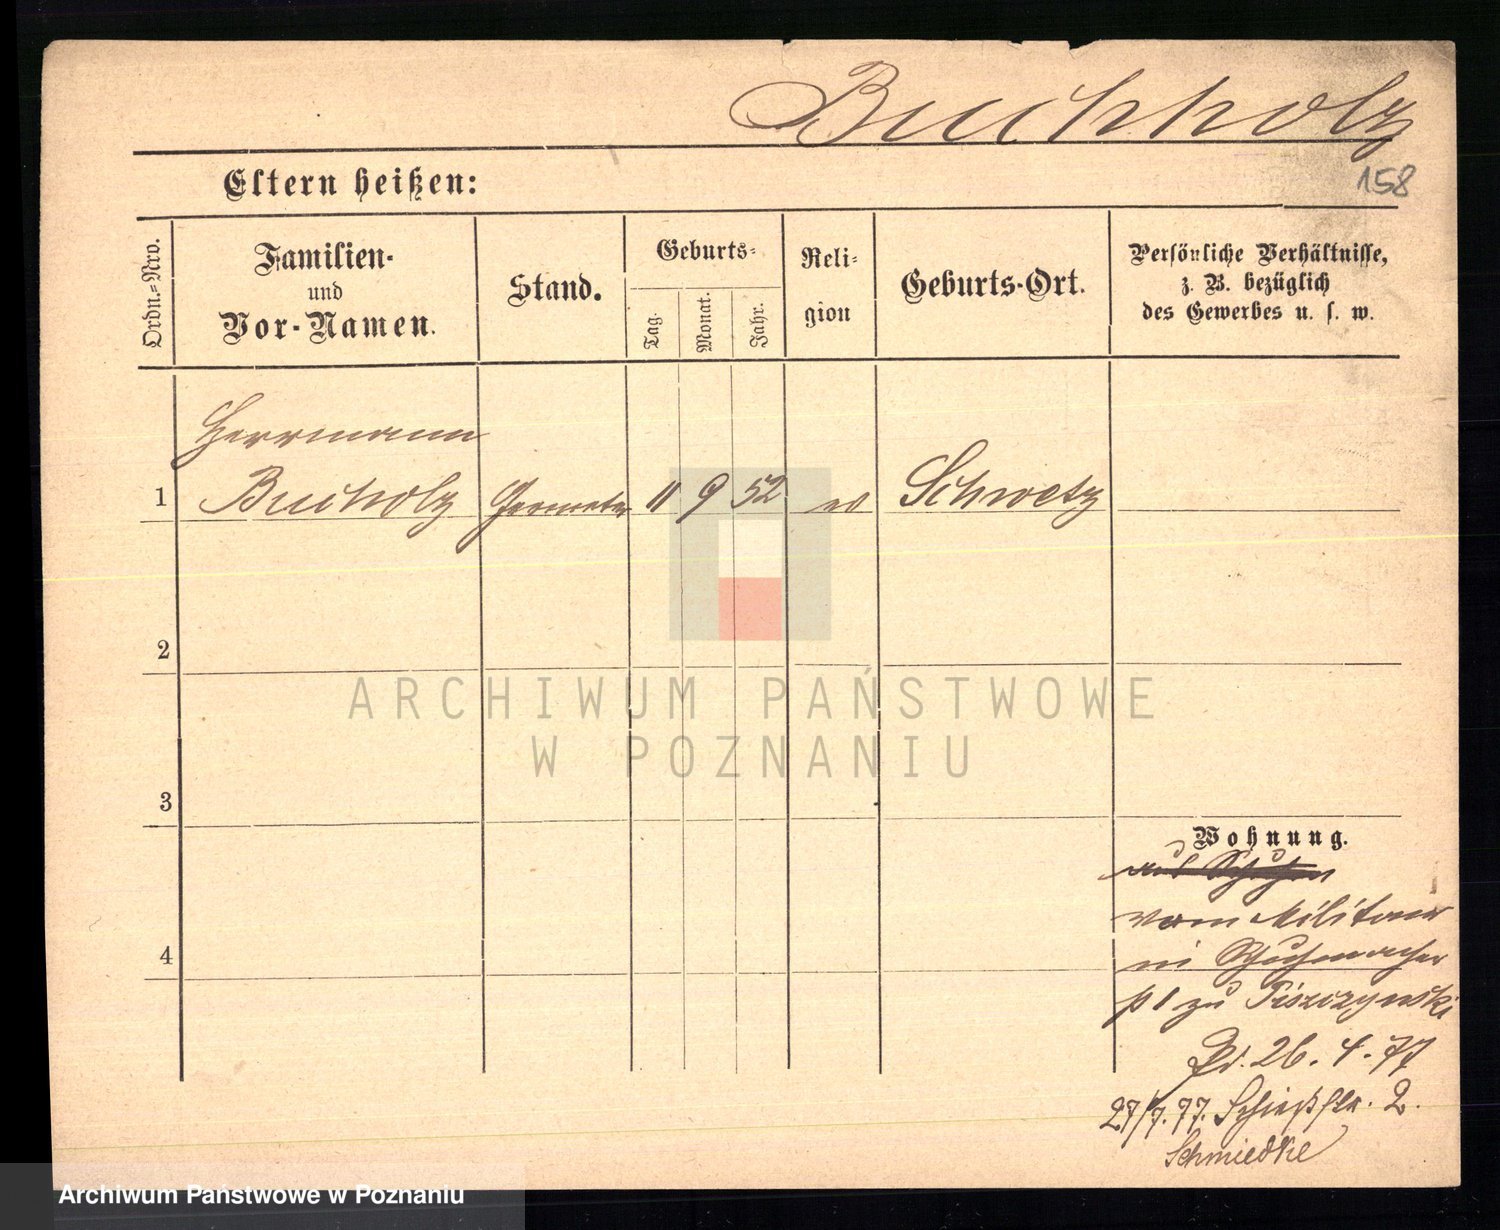 Buchholz
158
Eltern heißen:
Ordn.-Nro.
Familien-
und
Vor-Namen.
Stand.
Geburts-
Tag.
Monat.
Jahr.
Reli-
gion
Geburts-Ort.
Persönliche Verhältnisse,
z. B. bezüglich
des Gewerbes u. s. w.
Herrmann
1 Buchholz Geometer 11 9 52 ev Schwetz
2
ARCHIWUM PAŃSTWOWE
W POZNANIU
3
Wohnung.
vom Militair
4
in Schuhmacher
zu Piszczynski
26. 4. 77
27/7. 77. Schießstr. 2.
Schmiedke
Archiwum Państwowe w Poznaniu